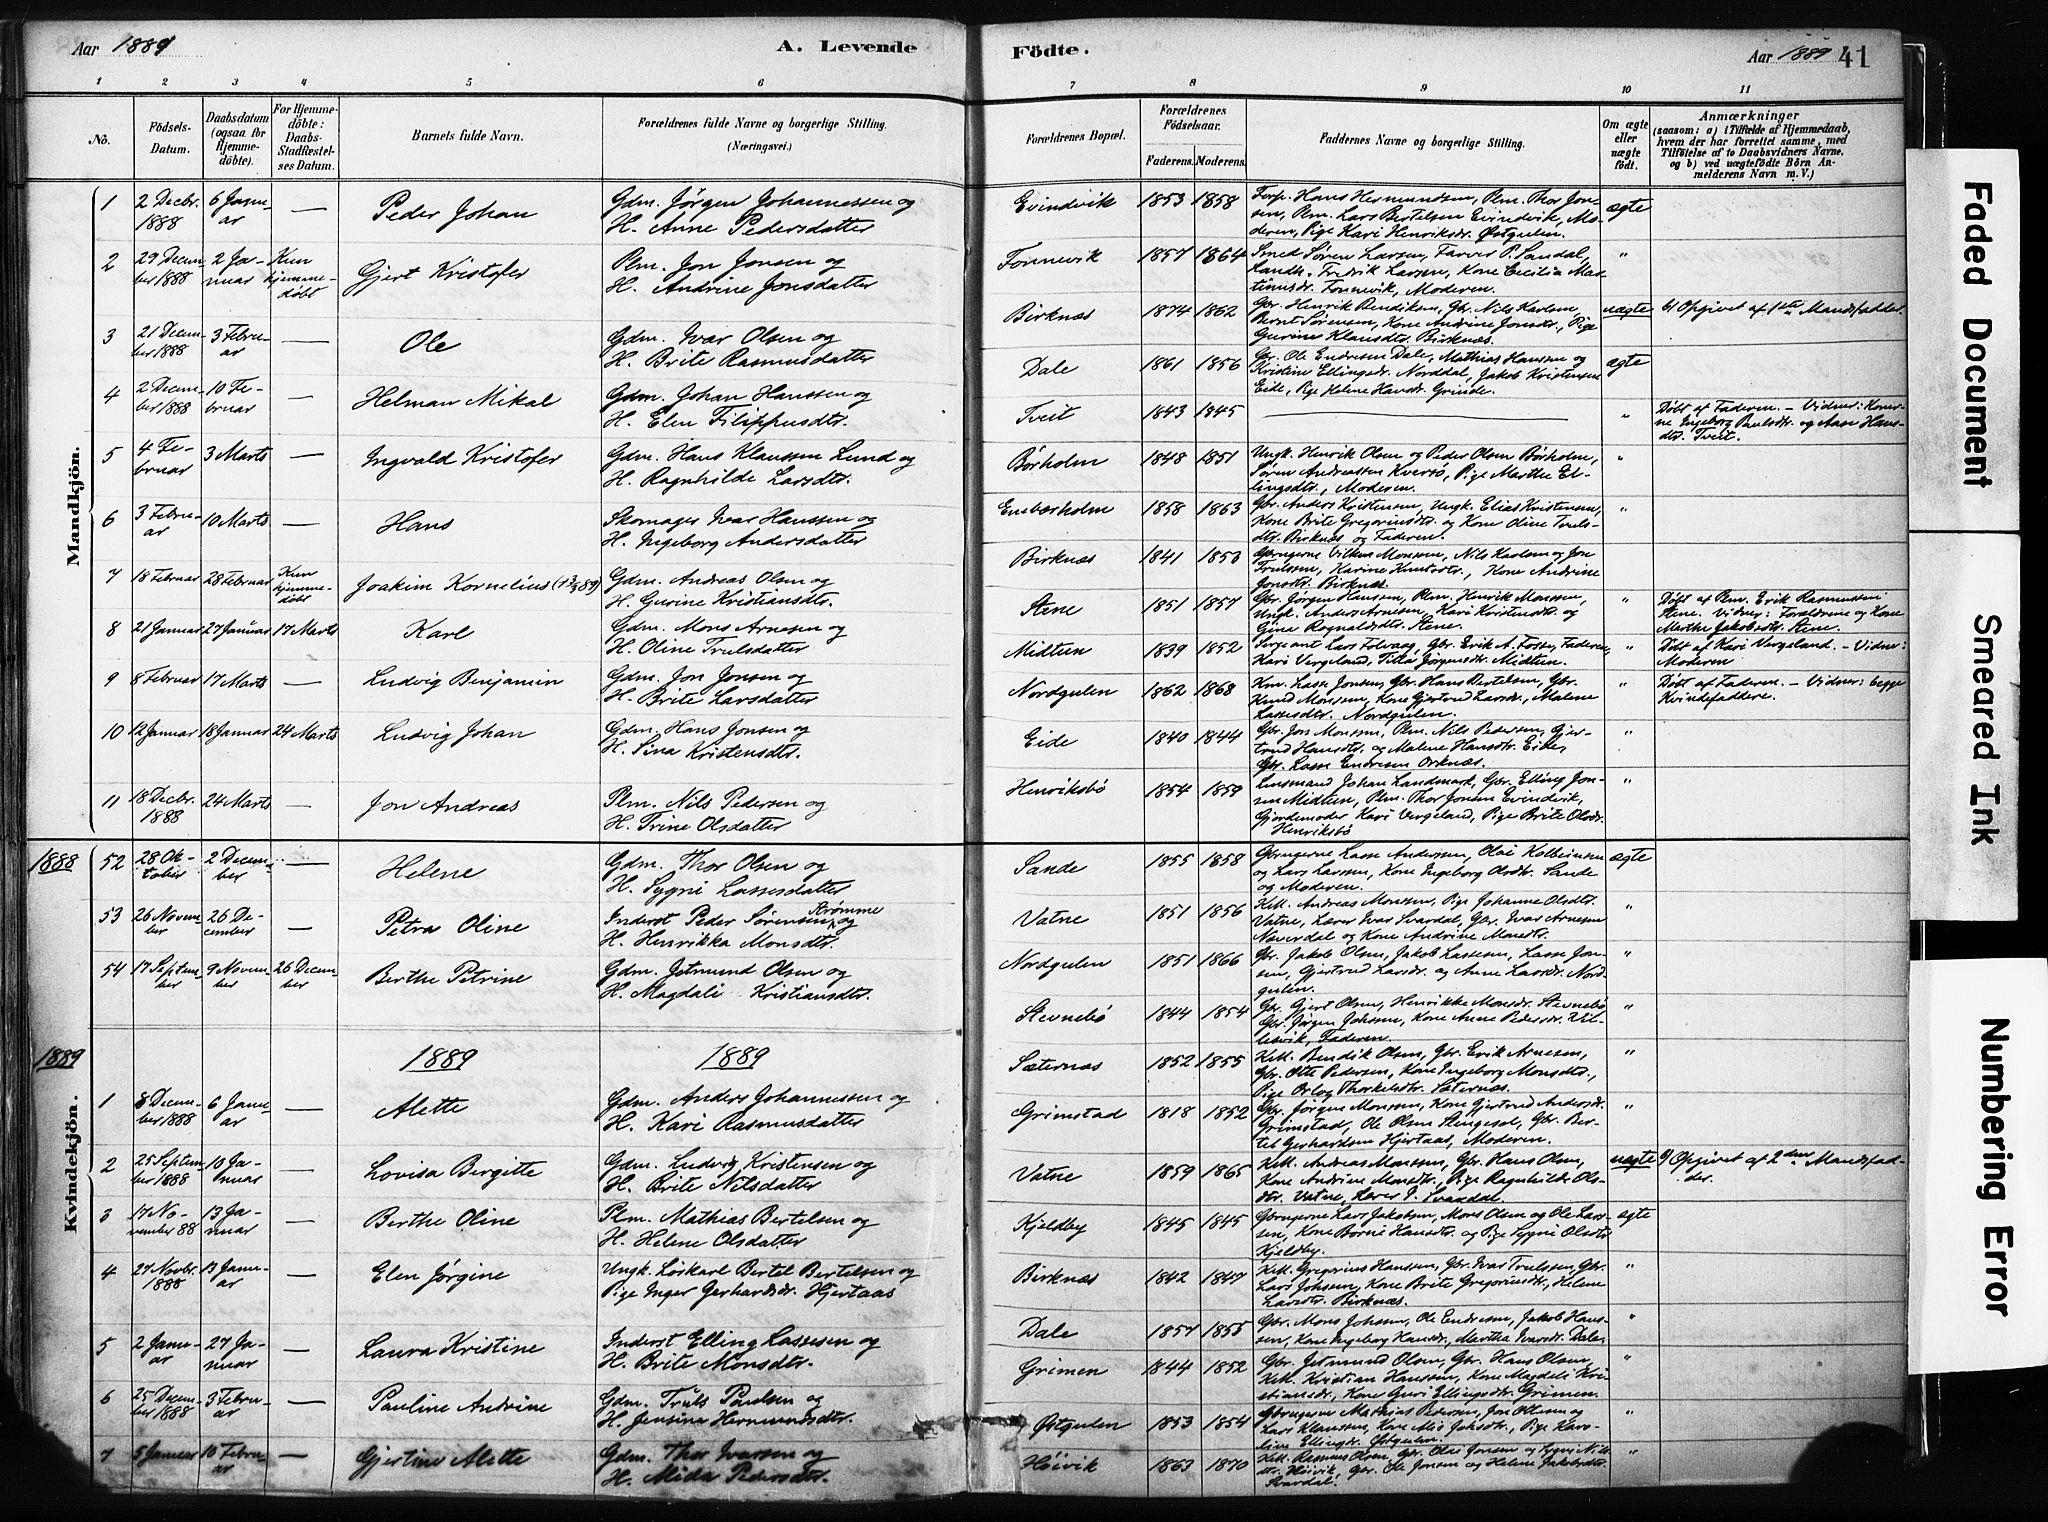 Aar 1889
A. Levende
1 2 3 4 5 6
No.
Födsels-Datum.
Daabsdatum (ogsaa for Hjemmedöbte).
For Hjemmedöbte: Daabs-Stadfæstelses Datum.
Barnets fulde Navn.
Forældrenes fulde Navne og borgerlige Stilling.
(Næringsvei.)
Mandkjön.
1 2 Decbr. 1888 6 Januar — Peder Johan Gdm. Jørgen Johannessen og
H. Anne Pedersdatter
2 29 December 1888 2 Januar Kun hjemmedøbt Gjert Kristofer Plm. Jon Jonsen og
H. Andrine Jonsdatter
3 21 December 1888 3 Februar — Ole Gdm. Ivar Olsen og
H. Brite Rasmusdatter
4 2 December 1888 10 Februar — Helman Mikal Gdm. Johan Hanssen og
H. Elen Filippusdtr.
5 4 Februar 3 Marts — Ingvald Kristofer Gdm. Hans Klaussen Lund og
H. Ragnhilde Larsdtr.
6 3 Februar 10 Marts — Hans Skomager Ivar Hanssen og
H. Ingeborg Andersdatter
7 18 Februar 28 Februar Kun hjemmedøbt Joakim Kornelius Gdm. Andreas Olsen og
H. Gurine Kristiansdtr.
8 21 Januar 27 Januar 17 Marts Karl Gdm. Mons Arnesen og
H. Oline Trulsdatter
9 8 Februar 17 Marts — Ludvig Benjamin Gdm. Jon Jonsen og
H. Brite Larsdatter
10 12 Januar 18 Januar 24 Marts Ludvig Johan Gdm. Hans Jonsen og
H. Sina Kristensdtr.
11 18 Decbr. 1888 24 Marts — Jon Andreas Plm. Nils Pedersen og
H. Trine Olsdatter
1888
52 28 Oktober 2 December — Helene Gdm. Thor Olsen og
H. Sygni Lassesdatter
53 26 November 26 December — Petra Oline Inderst Peder Sørensen Strømme og
H. Henrikka Monsdtr.
54 17 September 9 November 26 December Berthe Petrine Gdm. Jetmund Olsen og
H. Magdali Kristiansdtr.
1889 1889 1889
Kvindekjön.
1 8 December 1888 6 Januar — Alette Gdm. Anders Johannessen og
H. Kari Rasmusdatter
2 25 September 1888 10 Januar — Lovisa Bergitte Gdm. Ludvig Kristensen og
H. Brite Nilsdatter
3 17 November 88 13 Januar — Berthe Oline Plm. Mathias Bertelsen og
H. Helene Olsdatter
4 27 Novbr. 1888 13 Januar — Elen Jørgine Ungk. Løskarl Bertel Bertelsen og
Pige Inger Gerhardsdr. Hjertaas
5 2 Januar 27 Januar — Laura Kristine Inderst Elling Lassesen og
H. Brite Monsdtr.
6 25 December 1888 3 Februar — Pauline Andrine Gdm. Truls Paulsen og
H. Jensina Hermundsdtr.
7 5 Januar 10 Februar — Gjertine Alette Gdm. Thor Ivarsen og
H. Mida Pedersdtr.
Födte.
Aar 1889 41
7 8 9 10 11
Forældrenes Bopæl.
Forældrenes Födselsaar.
Faderens. Moderens.
Faddernes Navne og borgerlige Stilling.
Om ægte eller uægte födt.
Anmærkninger
(saasom: a) i Tilfælde af Hjemmedaab,
hvem der har forrettet samme, med
Tilföielse af to Daabsvidners Navne,
og b) ved uægtefödte Börn Anmelderens Navn m. V.)
Evindvik 1853 1858 Forp. Hans Hermundsen, Plm. Thor Jonsen, Plm. Lars Bertelsen Evindvik, Moderen, Pige Kari Henriksdr. Østgulen. ægte
Fonnevik 1857 1864 Smed Søren Larsen, Farver P. Sandal, Landh. Fredrik Larsen, Kone Cecilia Martinusdr. Fonnevik, Moderen. "
Birknæs 1874 1862 Gbr. Henrik Bendiksen, Gbr. Nils Karlsen, Bernt Sørensen, Kone Andrine Jonsdtr., Pige Gurine Klausdtr. Birknæs. uægte b) Opgivet af 1ste Mandsfadder.
Dale 1861 1856 Gbr. Ole Endresen Dale, Mathias Hanssen og Kristine Ellingsdr. Norddal, Jakob Kristensen Eide, Pige Helene Hansdr. Grinde. ægte
Tveit 1843 1845 — " Døbt af Faderen. – Vidner: Konerne Ingeborg Paulsdtr. og Aase Hansdtr. Tveit.
Børholm 1848 1851 Ungk. Henrik Olsen og Peder Olsen Børholm, Søren Andreassen Kversø, Pige Marthe Ellingsdtr., Moderen. "
Enebærholm 1858 1863 Gbr. Anders Kristensen, Ungk. Elias Kristensen, Kone Brite Gregoriusdtr. og Kone Oline Trulsdtr. Birknæs og Faderen. "
Birknæs 1841 1850 Gbrugerne Vilken Monssen, Nils Karlsen og Jon Trulssen, Karine Knutsdtr., Kone Andrine Jonsdtr. Birknæs.
Stene 1851 1857 Gbr. Jørgen Hanssen, Plm. Henrik Monssen, Ungk. Anders Arnesen, Kari Kristensdtr. og Gina Ragnaldsdtr. Stene. " Døbt af Plm. Erik Rasmussen Stene. Vidner: Forældrene og Kone Marthe Jakobsdtr. Stene.
Midtun 1839 1852 Sergeant Lars Folvaag, Gbr. Erik A. Fosse, Faderen, Kari Vergeland, Titta Jørgensdtr. Midtun. " Døbt af Kari Vergeland. – Vidner: Moderen
Nordgulen 1862 1868 Km. Lasse Jonsen, Gbr. Hans Bertelsen, Gbr. Knud Monssen, Kone Gjertrud Larsdr., Malene Lassesdtr. Nordgulen. " Døbt af Faderen. – Vidner: begge Kvindefaddere.
Eide 1840 1844 Gbr. Jon Monssen, Plm. Nils Pedersen, Gjertrud Hansdtr. og Malene Hansdtr. Eide, Gbr. Lasse Endresen Orknæs. "
Henriksbø 1854 1859 Lensmand Johan Landmark, Gbr. Elling Jonsen Midtun, Plm. Thor Jonsen Evindvik, Gjordemoder Kari Vergeland, Pige Brite Olsdr. Henriksbø "
Sande 1855 1858 Gbrugerne Lasse Anderssen, Olai Kolbeinsen og Lars Larssen, Kone Ingeborg Olsdtr. Sande og Moderen. ægte
Vatne 1851 1856 Kell. Andreas Monssen, Pige Johanne Olsdtr. Vatne, Lærer Ivar Svardal, Gbr. Ivar Arnesen Naverdal og Kone Andrine Monsdtr. "
Nordgulen 1851 1866 Gbr. Jakob Olsen, Jakob Lassesen, Lasse Jonsen, Gjertrud Larsdr. og Anne Larsdr. Nordgulen. "
Stevnebø 1844 1854 Gbr. Gjert Olsen, Henrikke Monsdr. Stevnebø, Gbr. Jørgen Johssen, Kone Anne Pedersdr. Faderen.
Sæternæs 1852 1855 Kell. Bendik Olsen, Gbr. Erik Arnesen, Gbr. Otte Pedersen, Kone Ingeborg Monsdtr., Pige Thorkelsdtr. Sæternæs. "
Grimstad 1818 1852 Gbr. Jørgen Monssen, Kone Gjertrud Andersdr. Grimstad, Ole Olsen Slengesol, Gbr. Bertel Gerhardsen Hjertaas, Moderen. "
Vatne 1859 1865 Kell. Andreas Monssen, Gbr. Hans Olsen, Kone Andrine Monsdtr., Pige Ragnhilde Olsdtr. Vatne, Lærer I. Svardal. uægte b) Opgivet af 2den Mandsfadder.
Kjeldby 1845 1845 Gbrugerne Lars Jakobsen, Mons Olsen og Ole Larssen, Kone Hansdtr. og Pige Sygni Olsdtr. Kjeldby. ægte
Birknæs 1842 1847 Kell. Gregorius Hanssen, Gbr. Ivar Trulssen, Gbr. Lars Johssen, Kone Brite Gregoriusdtr., Helene Larsdtr. Birknæs. "
Dale 1857 1855 Gbr. Mons Johssen, Ole Endresen, Jakob Hanssen, Kone Ingeborg Hansdr., Martha Ivarsdr. Dale. "
Grimen 1844 1852 Gbr. Jetmund Olsen, Gbr. Hans Olsen, Kell. Kristian Hanssen, Kone Magdeli Kristiansdr., Kone Guri Ellingsdtr. Grimen. "
Østgulen 1853 1854 Gbrugerne Mathias Pedersen, Jon Ottesen og Lars Klaussen, Kone Pige Karoline Ellingsdr. Østgulen. "
Höivik 1863 1870 Kell. Rasmus Olsen, Gbr. Olai Jonsen og Sygni Nilsdtr. Höivik, Gbr. Ole Jonsen og Helene Jakobsdtr. Svardal. "
Faded Document
Smeared Ink
Numbering Error